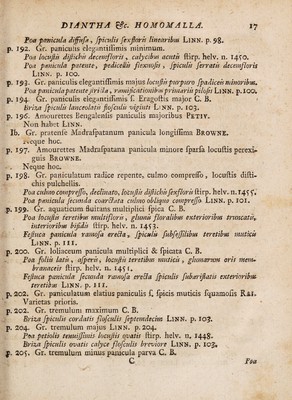 DIANTHA &c. HOMOMALLA. 17
Poa panicula diffusa, spiculis sexfloris linearibus LINN. p. 98.
p. 192. Gr. paniculis elegantissimis minimum.
Poa locustis distichis decemfloris, calycibus acutis stirp. helv. n. 1450.
Poa panicula patente, pedicellis flexuosis, spiculis serratis decemfloris
LINN. p. 100.
p. 193. Gr. paniculis elegantissimis majus locustis purpuro spadiceis minoribus.
Poa panicula patente stricta, ramificationibus primariis pilosis LINN. p. 100.
p. 194. Gr. paniculis elegantissimis s. Eragostis major C. B.
Briza spiculis lanceolatis flosculis viginti LINN. p. 103.
p. 196. Amourettes Bengalensis paniculis majoribus PETIV.
Non habet LINN.
Ib. Gr. pratense Madraspatanum panicula longissima BROWNE.
Neque hoc.
p. 197. Amourettes Madraspatana panicula minore sparsa locustis perexi-
guis BROWNE.
Neque hoc.
p. 198. Gr. paniculatum radice repente, culmo compresso, locustis disti-
chis pulchellis.
Poa culmo compresso, declinato, locustis distichis sexfloris stirp. helv. n. 1455.
Poa panicula secunda coarctata culmo obliquo compresso LINN. p. 101.
p. 199. Gr. aquaticum fluitans multiplici spica C. B.
Poa locustis teretibus multifloris, glumis floralibus exterioribus truncatis,
interioribus bifidis stirp. helv. n. 1453.
Festuca panicula ramosa erecta, spiculis subsessilibus teretibus muticis
LINN. p. 111.
p. 200. Gr. loliaceum panicula multiplici & spicata C. B.
Poa foliis latis, asperis, locustis teretibus muticis, glomarum oris mem-
branaceis stirp. helv. n. 1451.
Festuca panicula secunda ramosa erecta spiculis subaristatis exterioribus
teretibus LINN. p. 111.
p. 202. Gr. paniculatum elatius paniculis s. spicis muticis squamosis RAI.
Varietas prioris.
p. 202. Gr. tremulum maximum C. B.
Briza spiculis cordatis flosculis septemdecim LINN. p. 103.
p. 204. Gr. tremulum majus LINN. p. 204.
Poa petiolis tenuissimis locustis ovatis stirp. helv. n. 1448.
Briza spiculis ovatis calyce flosculis breviore LINN. p. 103.
p. 205. Gr. tremulum minus panicula parva C. B.
C Poa